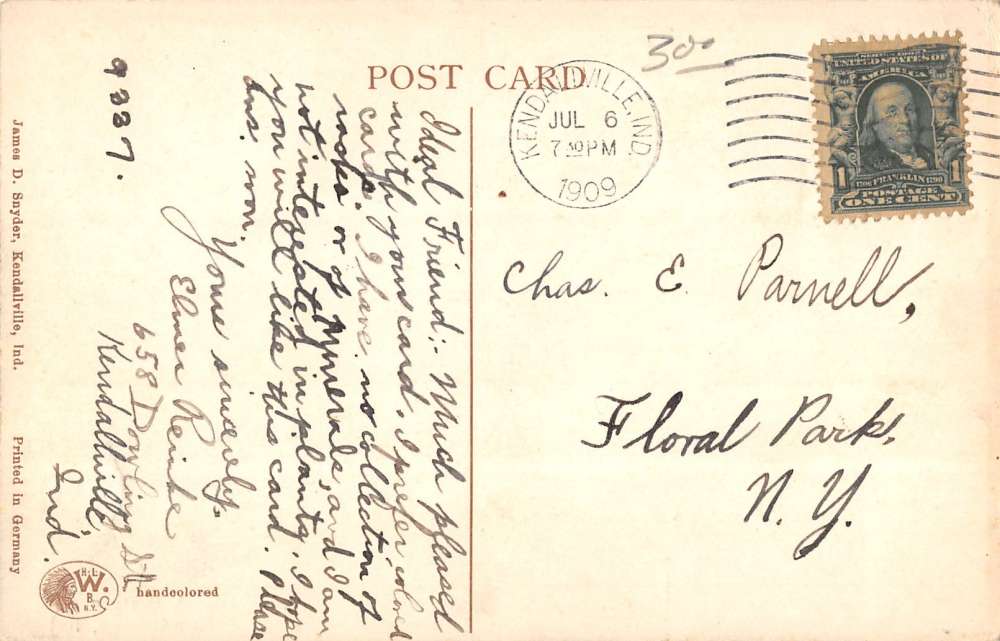 POST CARD
300
KENDALLVILLE, IND.
JUL 6
7 30 PM
1909
UNITED STATES OF
AMERICA
1706 FRANKLIN 1790
1 1
POSTAGE
ONE CENT
Chas. E. Parnell,
Floral Park,
N. Y.
Ideal Friend:- Much pleased
with your card. I prefer colored
cards. I have no collection of
rocks or of minerals, and I am
not interested in plants. I hope
you will like this card. Please
ans. soon.
Yours sincerely.
Elmer Reinke
658 Dowling St
Kendallville,
Ind.
9337.
James D. Snyder, Kendallville, Ind.
Printed in Germany
H.L.
W.
B. C
N.Y.
handcolored